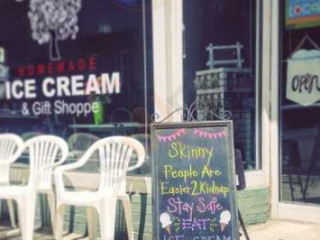 LOCAL
HOMEMADE
ICE CREAM
& Gift Shoppe
OPEN
Skinny
People Are
Easier2Kidnap
Stay Safe
EAT
ICE CREAM